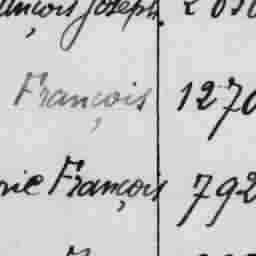 ançois Joseph. 2
François 1270
rie François 792